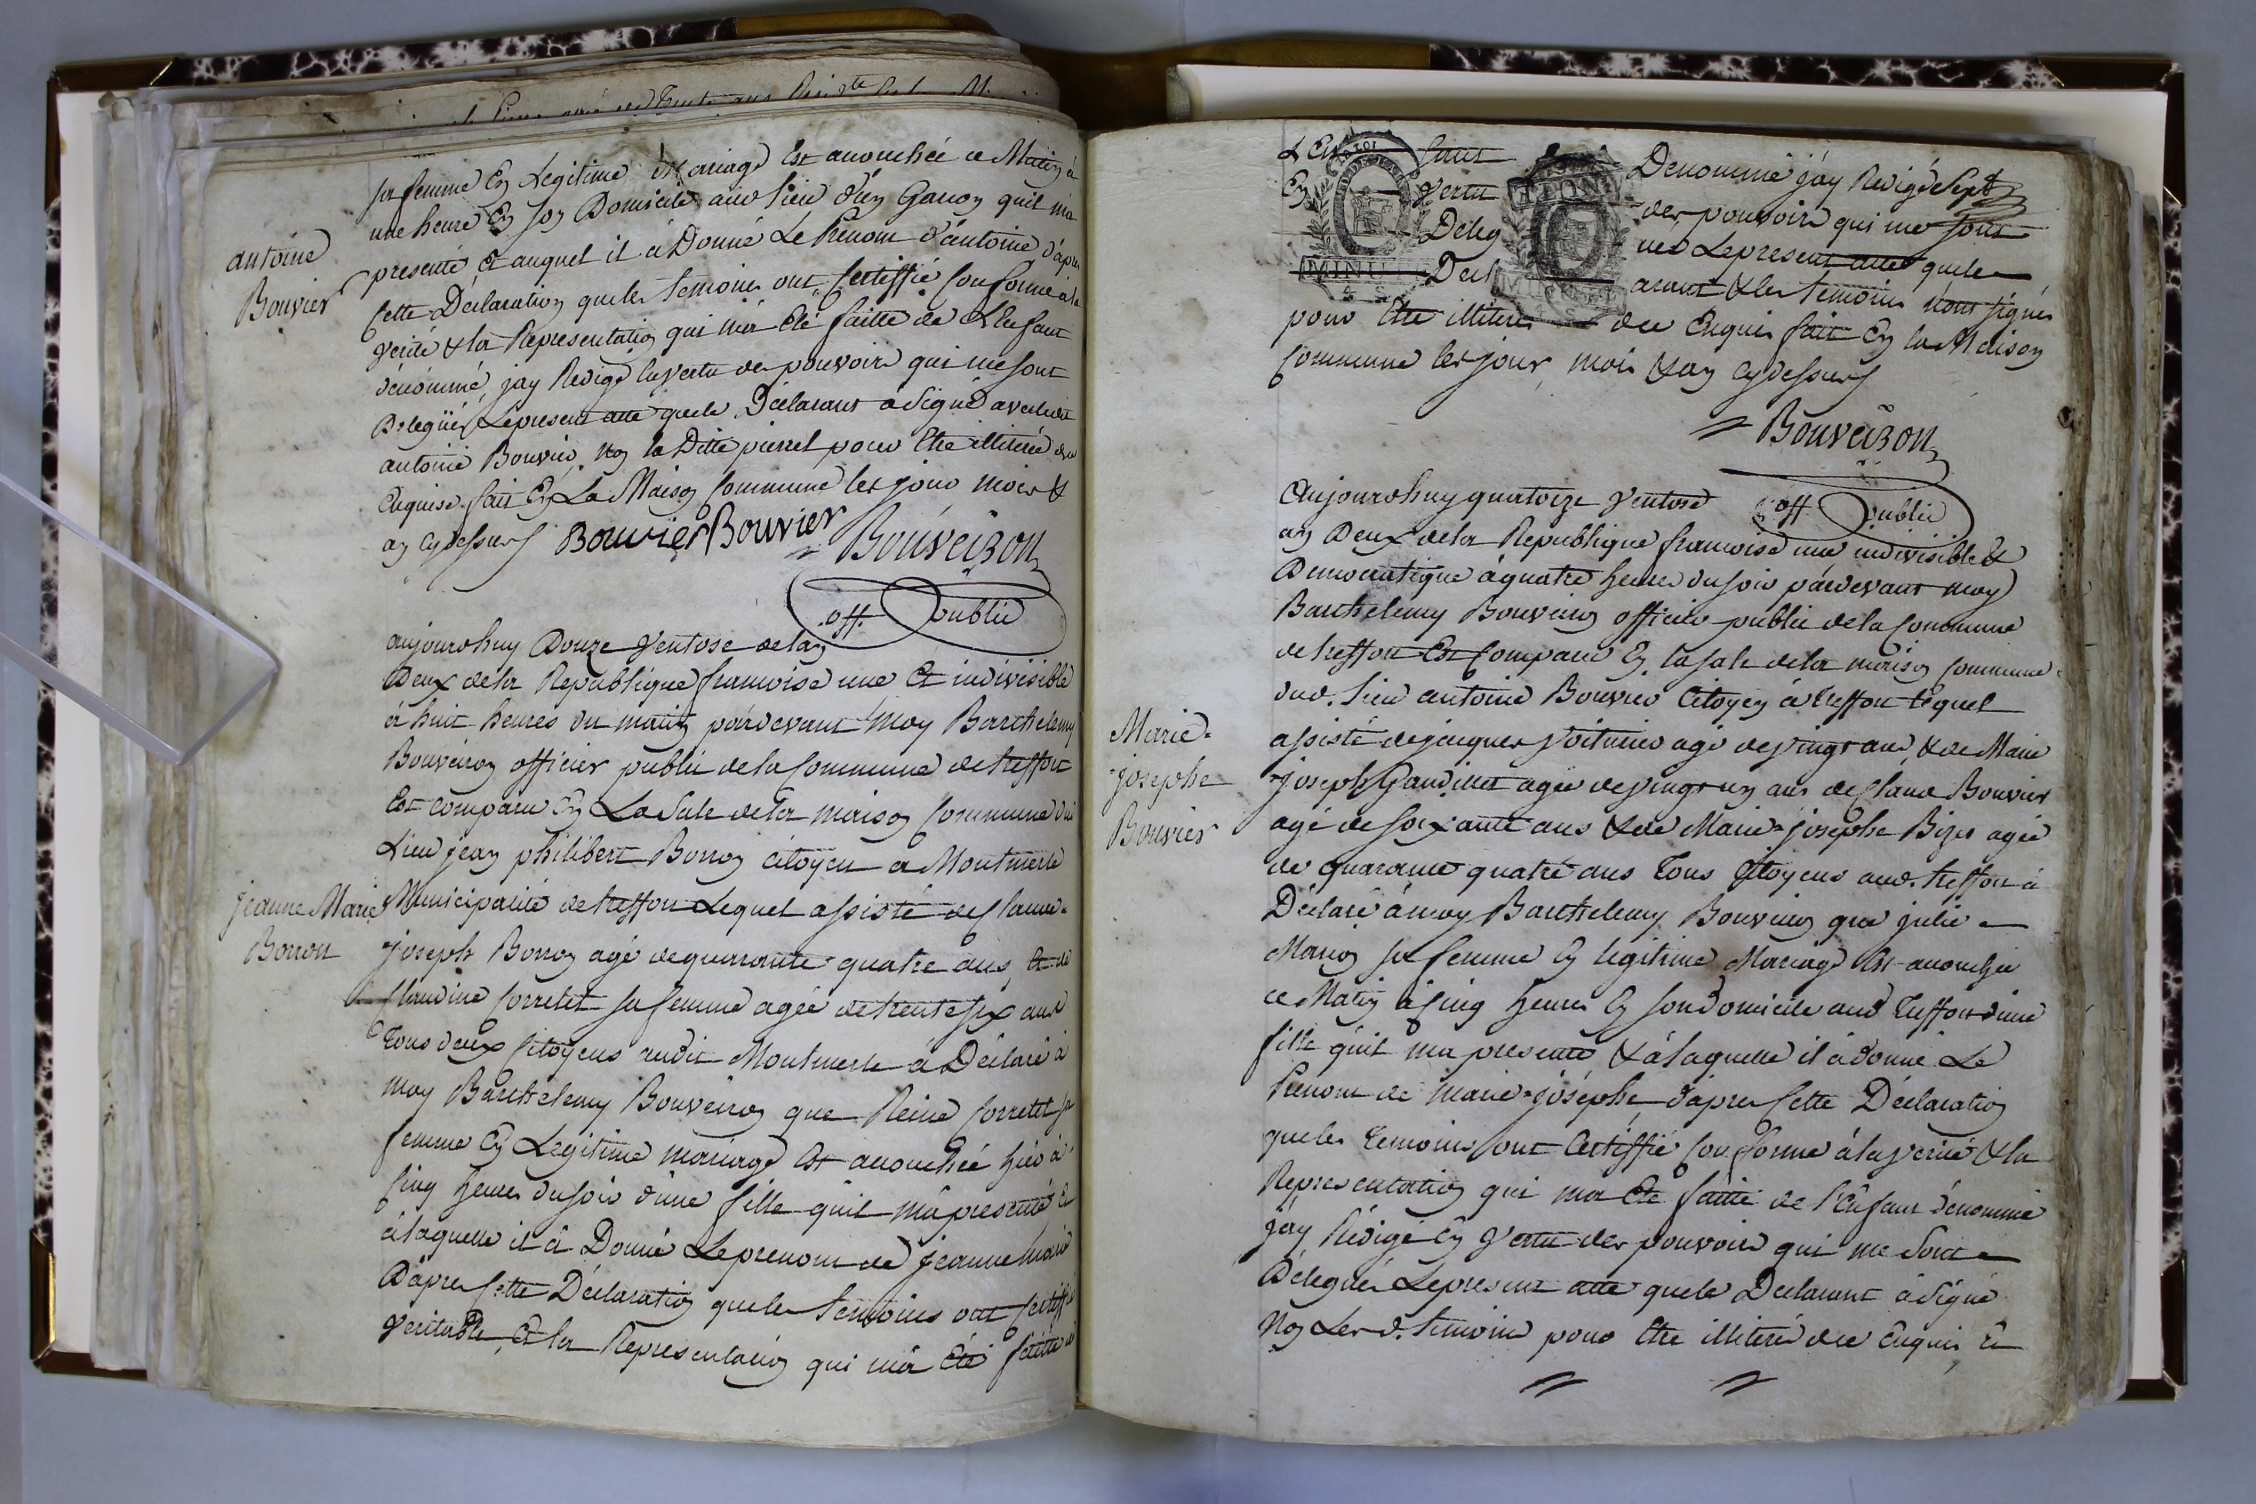 sa femme En Legitime Mariage Est accouchée ce Matin à
une heure En son Domicile aud. Lieu d'un Garcon quil ma
antoine
Bouvier
presenté Et auquel il à Donné Le Prenom d'antoine d'apres
Cette Déclaration que les temoins ont Certiffié Conforme a la
verité & la Representation qui m'a Eté faitte de L'Enfant
dénommé, jay Redigé En vertu des pouvoirs qui me sont
Delegués Le present acte que le Déclarant a Signé avec ledit
antoine Bouvier Non la Ditte pierret pour Etre illiterée de ce
Enquise. fait En La Maison Commune les jour mois &
an cy dessus Bouvier Bouvier Bouveiron
off. public
aujourdhuy Douze Ventose de lan
Deux de la Republique francoise une Et indivisible
à huit heures du matin pardevant moy Barthelemy
Bouveiron officier public de la Commune de treffort
Est comparu En La Sale de la maison Commune dud.
Lieu jean philibert Borron citoyen a Montmerle
Jeanne Marie
Borron
Municipalité de treffort Lequel assisté de Claude
joseph Borron agé de quarante quatre ans, Et de
Claudine Corretet sa femme agée de trente six ans
tous deux Citoyens audit Montmerle à Déclaré à
moy Barthelemy Bouveiron que Reine Corretet sa
femme En Legitime mariage Est accouchée hier à
Cinq heures du soir d'une fille quil m'à presenté &
à laquelle il à Donné Le prenom de jeanne marie
D'apres Cette Déclaration que les temoins ont Certiffié
veritable, Et la Representation qui m'a Eté faitte de
L'Enfant Denommé jay Redigé Sept
En vertu des pouvoirs qui me sont
Delegués Le present acte que le
Declarant & les temoins n'ont signés
pour Etre illiterés de ce Enquis fait En la Maison
Commune les jour, mois & an cy dessus
Bouveiron
off public
Aujourdhuy quatorze Ventose
an Deux de la Republique francoise une indivisible &
Democratique à quatre heures du soir pardevant moy
Barthelemy Bouveiron officier public de la Commune
de treffort Est Comparu En la sale de la maison Commune
dud. Lieu antoine Bouvier Citoyen à treffort lequel
Marie-
josephe
Bouvier
assisté de jacques Voiturier agé de vingt ans, & de Marie
joseph Gaudillet agée de vingt un ans de Claude Bouvier
agé de soixante ans & de Marie-josephe Bizer agée
de quarante quatre ans tous Citoyens aud. treffort à
Déclaré à moy Barthelemy Bouveiron que julie
Marion sa femme En legitime Mariage Est accouchée
ce Matin à Cinq heures En son domicile aud treffort d'une
fille quil ma presenté & à laquelle il à donné Le
Prenom de marie-josephe d'apres Cette Déclaration
que les temoins ont Certiffié Conforme à la verité & la
Representation qui ma Eté faitte de l'Enfant dénommé
jay Rédigé En vertu des pouvoirs qui me sont
Délegués Le present acte que le Declarant à Signé
Non Les d. temoins pour Etre illiterés de ce Enquis